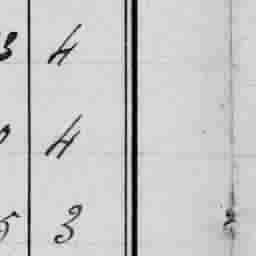 3 4
4
5 3